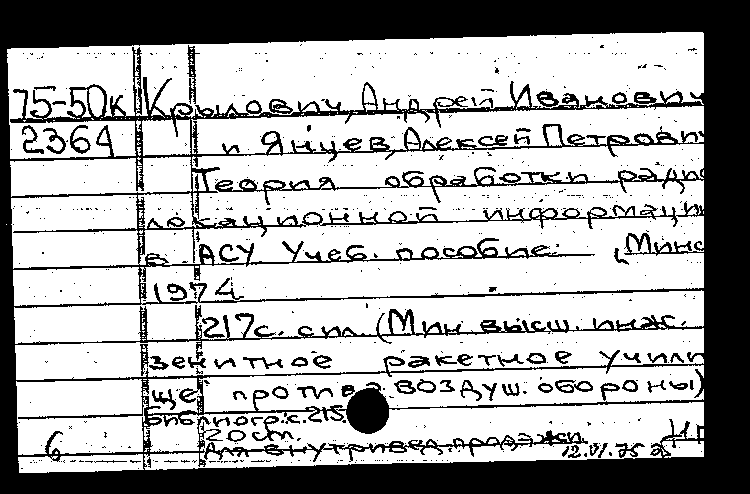 75-50к Крылович, Андрей Иванович
2364 и Янцев, Алексей Петрович
Теория обработки радио
локационной информации
в АСУ. Учеб. пособие. [Минс
1974
217с. с ил. (Мин. высш. инж.
зенитное ракетное учили
ще против. воздуш. обороны)
Библиогр.: с. 215.
20 см.
6 Для внутривед. продажи
12.VI.75